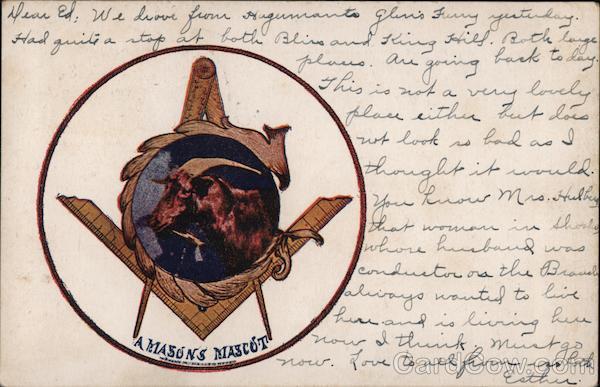 Dear Ed; We drove from Hagermans to Glen's Ferry yesterday.
Had quite a stop at both Bliss and King Hill. Both large
places. Are going back to day.
This is not a very lovely
place either but does
not look so bad as I
thought it would.
You know Mrs.
that woman in Shoshone
whose husband was
conductor on the Branch
always wanted to live
here and is living here
now I think. Must go
now. Love to all from us both
Esther.
A MASONS MASCOT
CardCow.com